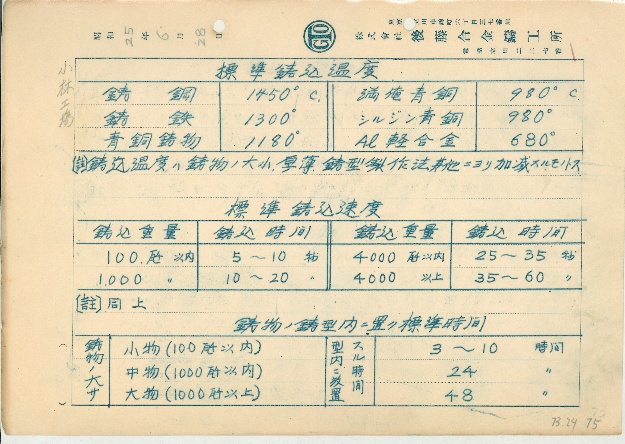 昭和25年6月28日
GTO
株式会社 後藤合金鑄工所
小林工場
標準鋳込温度
鋳鋼 1450°C. 満俺青銅 980°C.
鋳鉄 1300° シルジン青銅 980°
青銅鋳物 1180° Al軽合金 680°
[註]鋳込温度ハ鋳物ノ大小,厚薄鋳型製作法其他ニヨリ加減スルモノトス
標準鋳込速度
鋳込重量 鋳込時間 鋳込重量 鋳込時間
100.瓩以内 5～10秒 4000瓩以内 25～35秒
1.000 〃 10～20 〃 4000 以上 35～60 〃
[註]同上
鋳物ノ鋳型内ニ置ク標準時間
鋳物ノ大サ
小物(100瓩以内)
中物(1000瓩以内)
大物(1000瓩以上)
型内ニ放置スル時間
3～10 時間
24 〃
48 〃
73.29 75